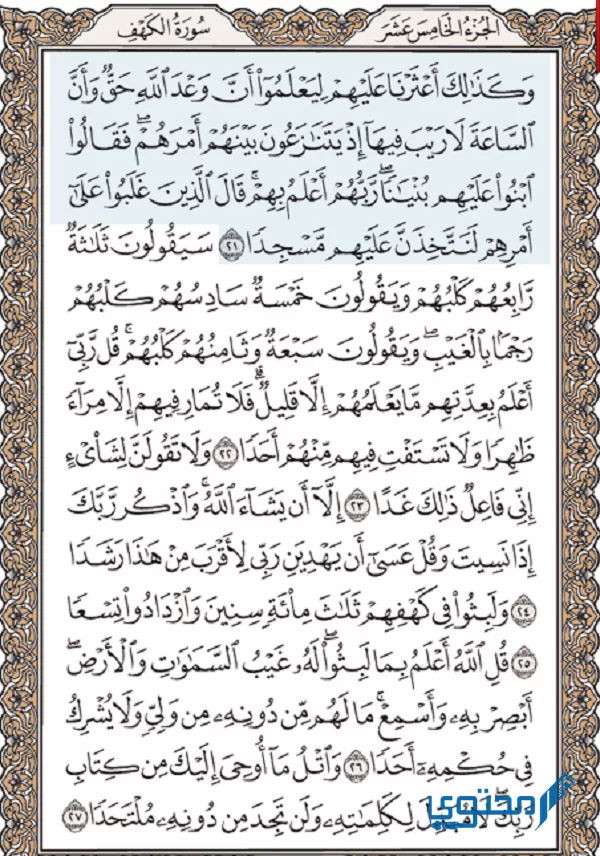 الجزء الخامس عشر
سورة الكهف
وَكَذَٰلِكَ أَعْثَرْنَا عَلَيْهِمْ لِيَعْلَمُوٓا۟ أَنَّ وَعْدَ ٱللَّهِ حَقٌّ وَأَنَّ
ٱلسَّاعَةَ لَا رَيْبَ فِيهَآ إِذْ يَتَنَٰزَعُونَ بَيْنَهُمْ أَمْرَهُمْ ۖ فَقَالُوا۟
ٱبْنُوا۟ عَلَيْهِم بُنْيَٰنًا ۖ رَّبُّهُمْ أَعْلَمُ بِهِمْ ۚ قَالَ ٱلَّذِينَ غَلَبُوا۟ عَلَىٰٓ
أَمْرِهِمْ لَنَتَّخِذَنَّ عَلَيْهِم مَّسْجِدًا ٢١ سَيَقُولُونَ ثَلَٰثَةٌ
رَّابِعُهُمْ كَلْبُهُمْ وَيَقُولُونَ خَمْسَةٌ سَادِسُهُمْ كَلْبُهُمْ
رَجْمًۢا بِٱلْغَيْبِ ۖ وَيَقُولُونَ سَبْعَةٌ وَثَامِنُهُمْ كَلْبُهُمْ ۚ قُل رَّبِّىٓ
أَعْلَمُ بِعِدَّتِهِم مَّا يَعْلَمُهُمْ إِلَّا قَلِيلٌ ۗ فَلَا تُمَارِ فِيهِمْ إِلَّا مِرَآءً
ظَٰهِرًا وَلَا تَسْتَفْتِ فِيهِم مِّنْهُمْ أَحَدًا ٢٢ وَلَا تَقُولَنَّ لِشَا۟ىْءٍ
إِنِّى فَاعِلٌ ذَٰلِكَ غَدًا ٢٣ إِلَّآ أَن يَشَآءَ ٱللَّهُ ۚ وَٱذْكُر رَّبَّكَ
إِذَا نَسِيتَ وَقُلْ عَسَىٰٓ أَن يَهْدِيَنِ رَبِّى لِأَقْرَبَ مِنْ هَٰذَا رَشَدًا
٢٤ وَلَبِثُوا۟ فِى كَهْفِهِمْ ثَلَٰثَ مِا۟ئَةٍ سِنِينَ وَٱزْدَادُوا۟ تِسْعًا
٢٥ قُلِ ٱللَّهُ أَعْلَمُ بِمَا لَبِثُوا۟ ۖ لَهُۥ غَيْبُ ٱلسَّمَٰوَٰتِ وَٱلْأَرْضِ ۖ
أَبْصِرْ بِهِۦ وَأَسْمِعْ ۚ مَا لَهُم مِّن دُونِهِۦ مِن وَلِىٍّ وَلَا يُشْرِكُ
فِى حُكْمِهِۦٓ أَحَدًا ٢٦ وَٱتْلُ مَآ أُوحِىَ إِلَيْكَ مِن كِتَابِ
رَبِّكَ ۖ لَا مُبَدِّلَ لِكَلِمَٰتِهِۦ وَلَن تَجِدَ مِن دُونِهِۦ مُلْتَحَدًا ٢٧
محتوى